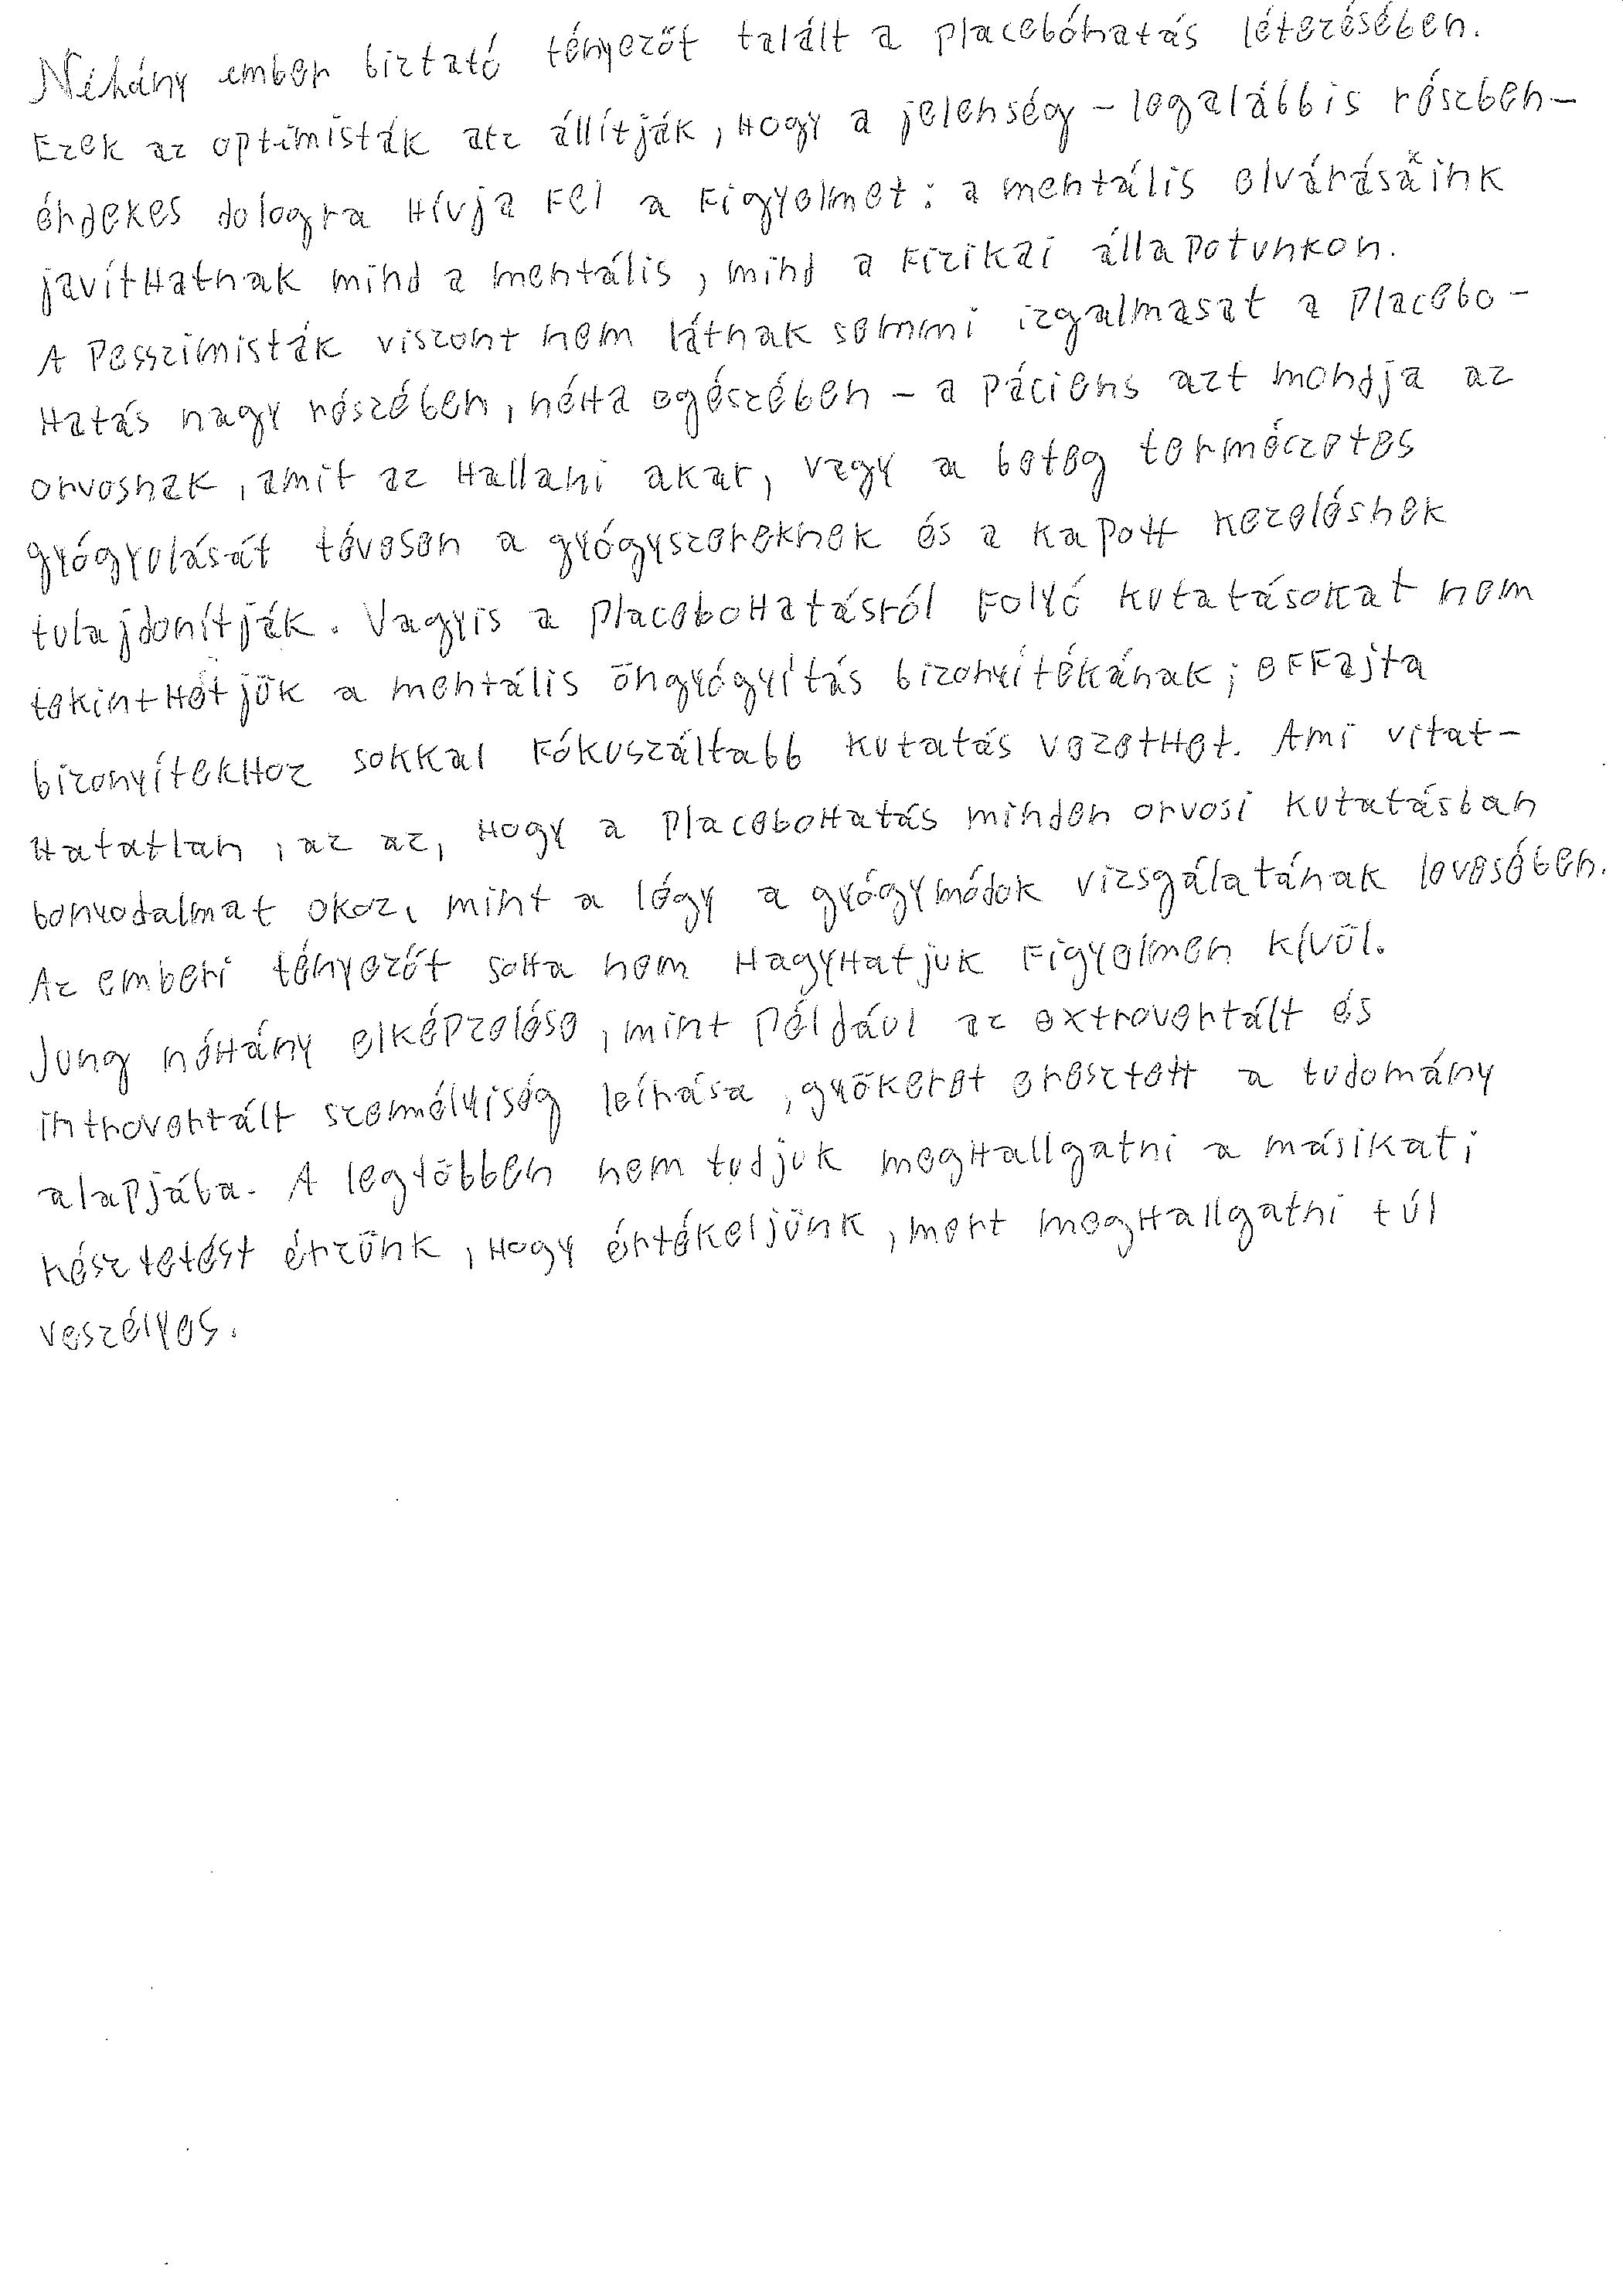 Néhány ember biztató tényezőt talált a placebóhatás létezésében.
Ezek az optimisták azt állítják, hogy a jelenség – legalábbis részben –
érdekes dologra hívja fel a figyelmet: a mentális elvárásaink
javíthatnak mind a mentális, mind a fizikai állapotunkon.
A pesszimisták viszont nem látnak semmi izgalmasat a placebo-
hatás nagy részében, néha egészében – a páciens azt mondja az
orvosnak, amit az hallani akar, vagy a beteg természetes
gyógyulását tévesen a gyógyszereknek és a kapott kezelésnek
tulajdonítják. Vagyis a placebohatásról folyó kutatásokat nem
tekinthetjük a mentális öngyógyítás bizonyítékának; effajta
bizonyítékhoz sokkal fókuszáltabb kutatás vezethet. Ami vitat-
hatatlan, az az, hogy a placebohatás minden orvosi kutatásban
bonyodalmat okoz, mint a légy a gyógymódok vizsgálatának levesében.
Az emberi tényezőt soha nem hagyhatjuk figyelmen kívül.
Jung néhány elképzelése, mint például az extrovertált és
introvertált személyiség leírása, gyökeret eresztett a tudomány
alapjába. A legtöbben nem tudjuk meghallgatni a másikat;
késztetést érzünk, hogy értékeljünk, mert meghallgatni túl
veszélyes.